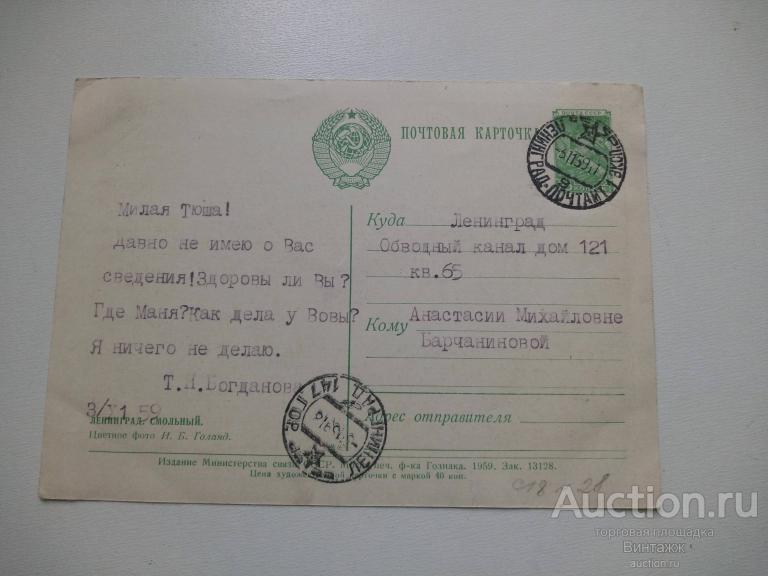 ПОЧТА СССР
ПОЧТОВАЯ КАРТОЧКА
ЛЕНИНГРАД-ПОЧТАМТ
Милая Тюша!
давно не имею о Вас
сведения!Здоровы ли Вы?
Где Маня?Как дела у Вовы?
Я ничего не делаю.
Богданова
3/X1 59
Куда Ленинград
Обводный канал дом 121
кв.65
Кому Анастасии Михайловне
Барчаниновой
Адрес отправителя
ЛЕНИНГРАД 147 ГОР.
ЛЕНИНГРАД. СМОЛЬНЫЙ.
Цветное фото И. Б. Голанд.
Издание Министерства связи СССР. печ. ф-ка Гознака. 1959. Зак. 13128.
Цена художественной карточки с маркой 40 коп.
Auction.ru
торговая площадка
Винтажж
auction.ru